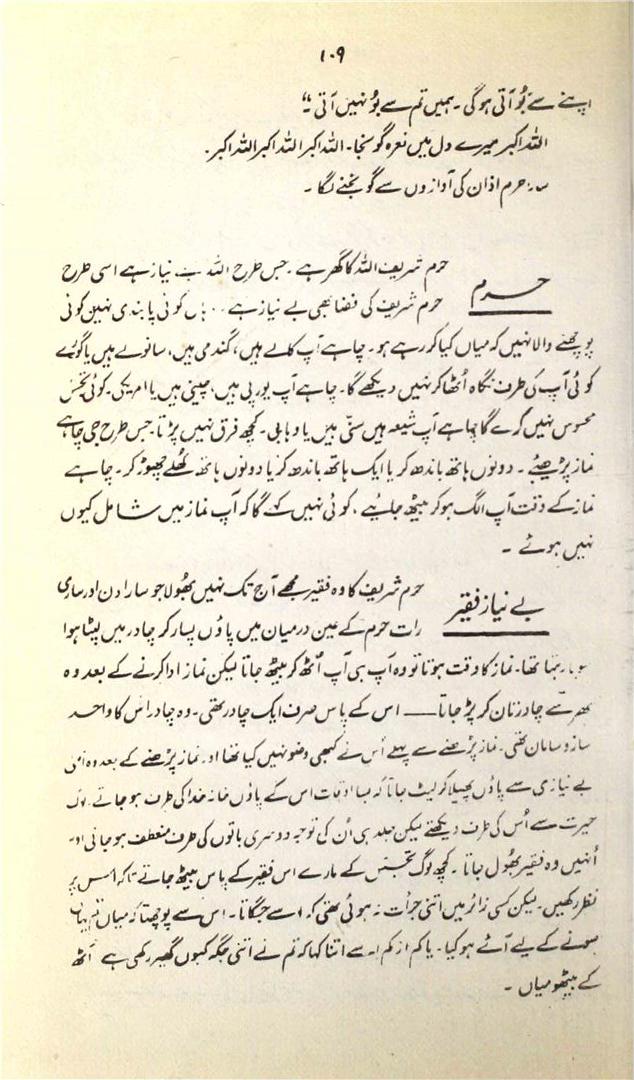 ۱۰۹
اپنے سے بُو آتی ہوگی۔ ہمیں تم سے بُو نہیں آتی۔“
اللہ اکبر میرے دل میں نعرہ گونجا۔ اللہ اکبر اللہ اکبر اللہ اکبر۔
سارا حرم اذان کی آوازوں سے گونجنے لگا۔
حرم
حرم شریف اللہ کا گھر ہے۔ جس طرح اللہ بے نیاز ہے اسی طرح
حرم شریف کی فضا بھی بے نیاز ہے۔ وہاں کوئی پابندی نہیں کوئی
پوچھنے والا نہیں کہ میاں کیا کر رہے ہو۔ چاہے آپ کالے ہیں، گندمی ہیں، سانولے ہیں یا گورے
کوئی آپ کی طرف نگاہ اُٹھا کر نہیں دیکھے گا۔ چاہے آپ یورپی ہیں، چینی ہیں یا امریکی۔ کوئی تجسس
محسوس نہیں کرے گا چاہے آپ شیعہ ہیں سنّی ہیں یا وہابی۔ کچھ فرق نہیں پڑتا۔ جس طرح جی چاہے
نماز پڑھیئے۔ دونوں ہاتھ باندھ کر یا ایک ہاتھ باندھ کر یا دونوں ہاتھ کھلے چھوڑ کر۔ چاہے
نماز کے وقت آپ الگ ہو کر بیٹھ جائیے، کوئی نہیں کہے گا کہ آپ نماز میں شامل کیوں
نہیں ہوئے۔
بے نیاز فقیر
حرم شریف کا وہ فقیر مجھے آج تک نہیں بھولا جو سارا دن اور ساری
رات حرم کے عین درمیان میں پاؤں پسار کر چادر میں لپٹا ہوا
سویا رہتا تھا۔ نماز کا وقت ہوتا تو وہ آپ ہی آپ اُٹھ کر بیٹھ جاتا لیکن نماز ادا کرنے کے بعد وہ
پھر سے چادر تان کر پڑ جاتا — اس کے پاس صرف ایک چادر تھی۔ وہ چادر اس کا واحد
ساز و سامان تھی۔ نماز پڑھنے سے پہلے اُس نے کبھی وضو نہیں کیا تھا اور نماز پڑھنے کے بعد وہ اسی
بے نیازی سے پاؤں پھیلا کر لیٹ جاتا کہ بسا اوقات اس کے پاؤں خانہ خدا کی طرف ہو جاتے۔ لوگ
حیرت سے اُس کی طرف دیکھتے لیکن جلد ہی اُن کی توجہ دوسری باتوں کی طرف منعطف ہو جاتی اور
اُنہیں وہ فقیر بھول جاتا۔ کچھ لوگ تجسس کے مارے اس فقیر کے پاس بیٹھ جاتے تاکہ اس پر
نظر رکھیں۔ لیکن کسی زائر میں اتنی جرأت نہ ہوئی تھی کہ اسے جگاتا۔ اس سے پوچھتا کہ میاں تم یہاں
سونے کے لیے آئے ہو کیا۔ یا کم از کم اسے اتنا کہتا کہ تم نے اتنی جگہ کیوں گھیر رکھی ہے اُٹھ
کے بیٹھو میاں۔